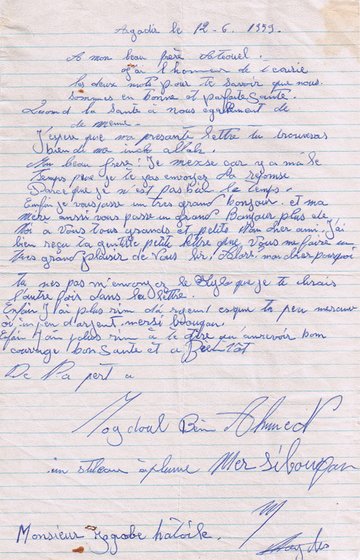 Agadir le 12-6. 1999.
A mon beau frère
J'ai l'honneur de t'ecrire
les deux mots pour te savoir que nous
sommes en bonne et parfaite Santé
Quand la Santé à nous également de
de meme.
J'éspre que ma presente lettre tu trouveras
bien de ma inch allah.
Mon beau frere! Je
temps pour je te
Parce que je n'est pas bal le temps.
Enfin je vous passe un tres grand bonjour. et ma
mere aussi vous passe un grand Bonjour plus de
Moi a Vous tous grands et petits Mon cher ami. J'ai
bien reçu ta gentille petite lettre Vous me faire un
tres grand plaisir de Vous lir, Alors mon cher pourquoi
Tu nes pas m'envoyez le Stylo que je te dirais
l'autre fois dans la lettre.
Enfin J'ai plus rien d'argent esque tu peu menvoier
où un peu d'argent, mersi boucpan.
Enfin J'ai plus rien à te dire au'anrevoir bon
courage bon Sante et a Bientôt
De Pa pert a
Ben Ahmed
un stileau à plume Mersiboupan
Monsieur